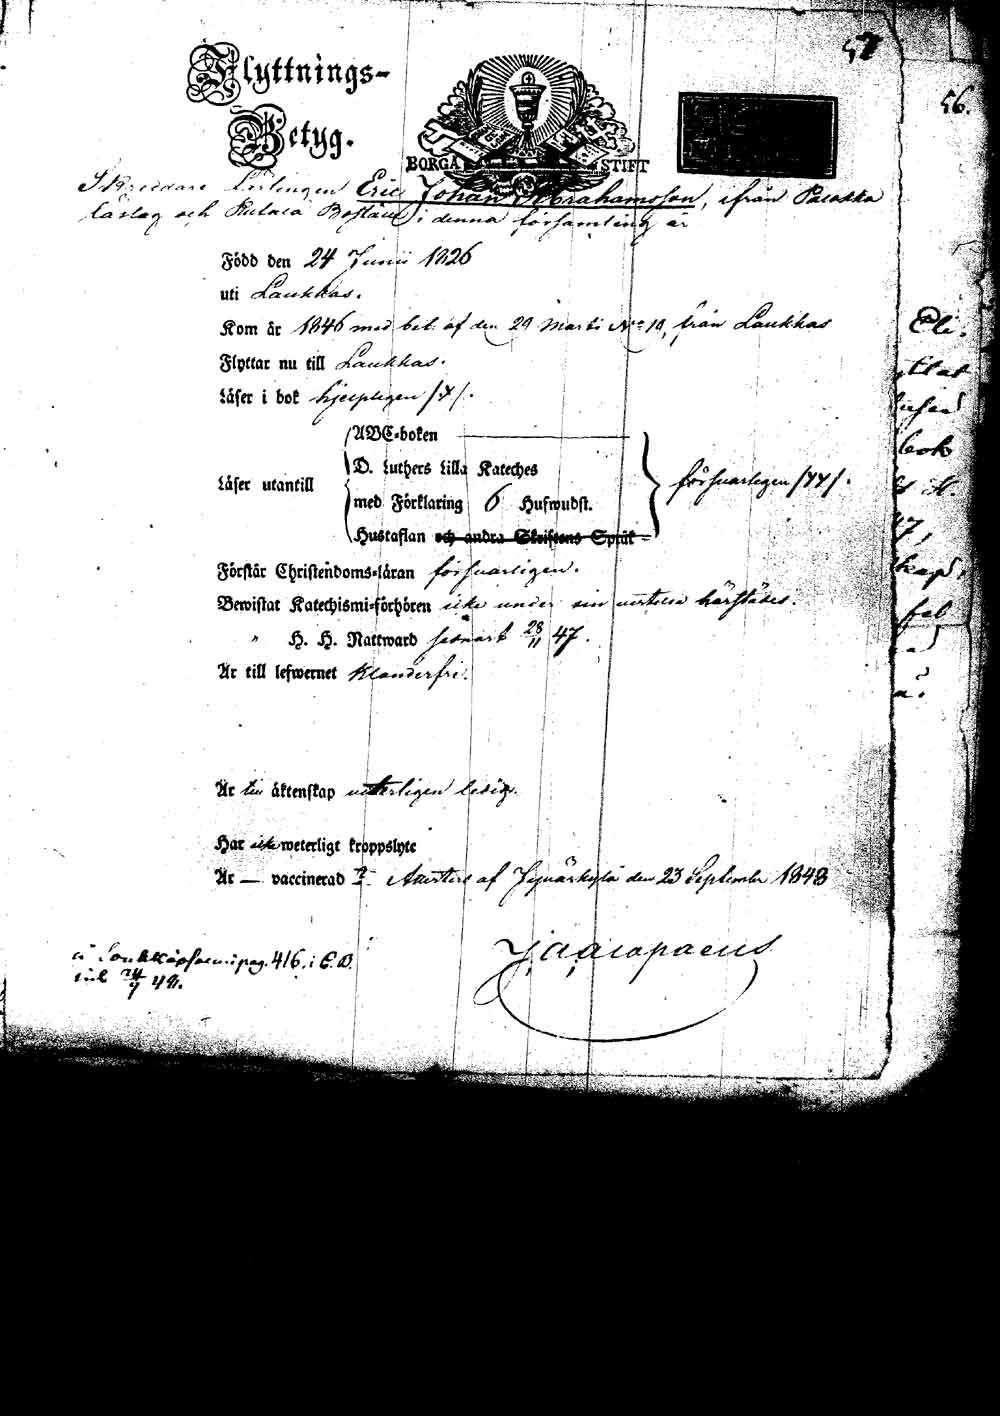 57
56.
Flyttnings-
Betyg.
BORGÅ STIFT
Skreddare Lärlingen Eric Johan Abrahamsson, ifrån Palokka
låslag och i denna församling är
Född den 24 Junii 1826
uti Laukkas.
Kom år 1846 med bet. af den 29 Marti No 10, från Laukkas
Flyttar nu till Laukkas.
Läser i bok hjelpligen /Y/.
Läser utantill
ABC-boken
D. Luthers Lilla Kateches
med Förklaring 6 Hufwudst.
Hustaflan och andra Skriftens Språk
försvarligen /YY/.
Förstår Christendoms-läran försvarligen.
Bewistat Katechismi-förhören icke under sin härstädes.
" H. H. Nattward senast 28/11 47.
Är till lefwernet Klanderfri.
Är till äktenskap veterligen ledig.
Har icke weterligt kroppslyte
Är — vaccinerad Attestere af Jyväskylä den 23 September 1848
pag. 416. i C. B.
48.
bok